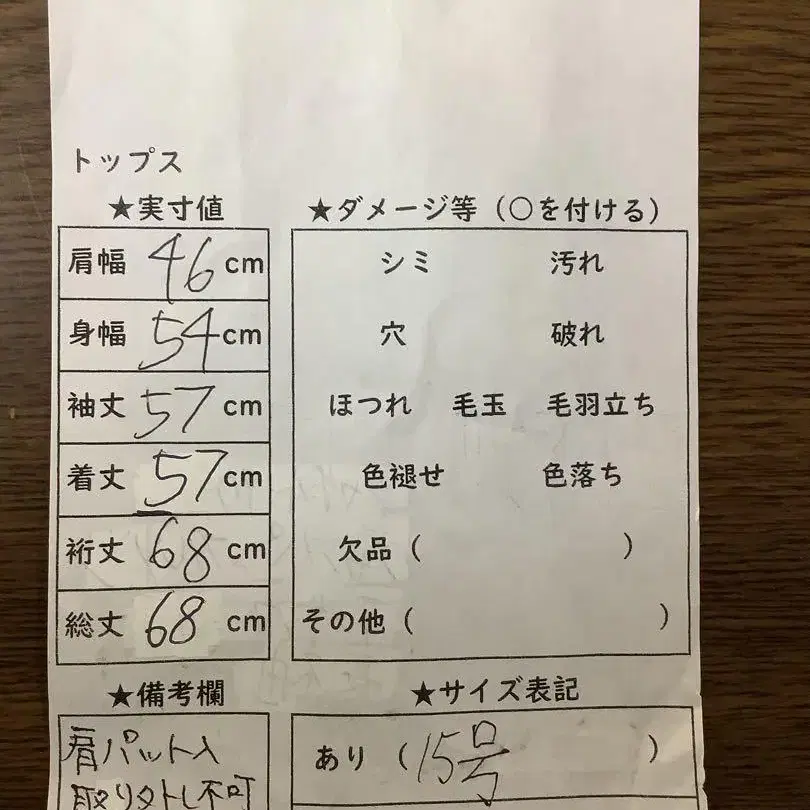 トップス
★実寸値
肩幅 46 cm
身幅 54 cm
袖丈 57 cm
着丈 57 cm
裄丈 68 cm
総丈 68 cm
★ダメージ等（○を付ける）
シミ 汚れ
穴 破れ
ほつれ 毛玉 毛羽立ち
色褪せ 色落ち
欠品（ ）
その他（ ）
★備考欄
肩パット入
取り外し不可
★サイズ表記
あり（15号）